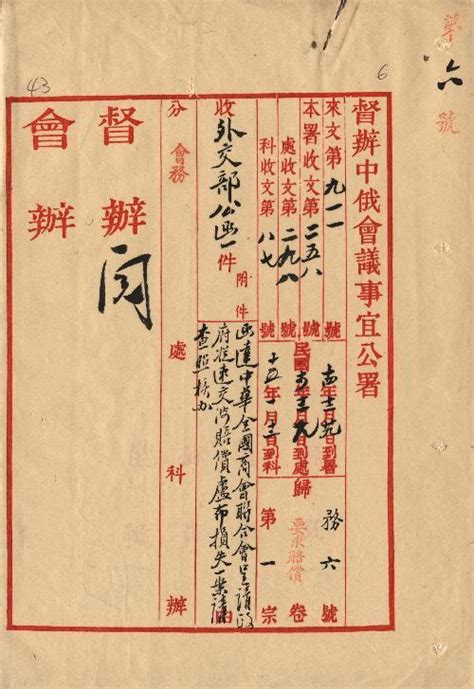 第六號
43
6
督辦中俄會議事宜公署
來文第九一一號
本署收文第二五八號
處收文第二九八號
科收文第八七號
日到署
民國
日到處
十五年一月
日到科
歸
務六號
要求賠償
卷
第一宗
收外交部公函一件
附件
函達中華全國商會聯合會呈請政
府從速交涉賠償盧布損失一案請
查照核办
由
分會務處科辦
督辦
會辦